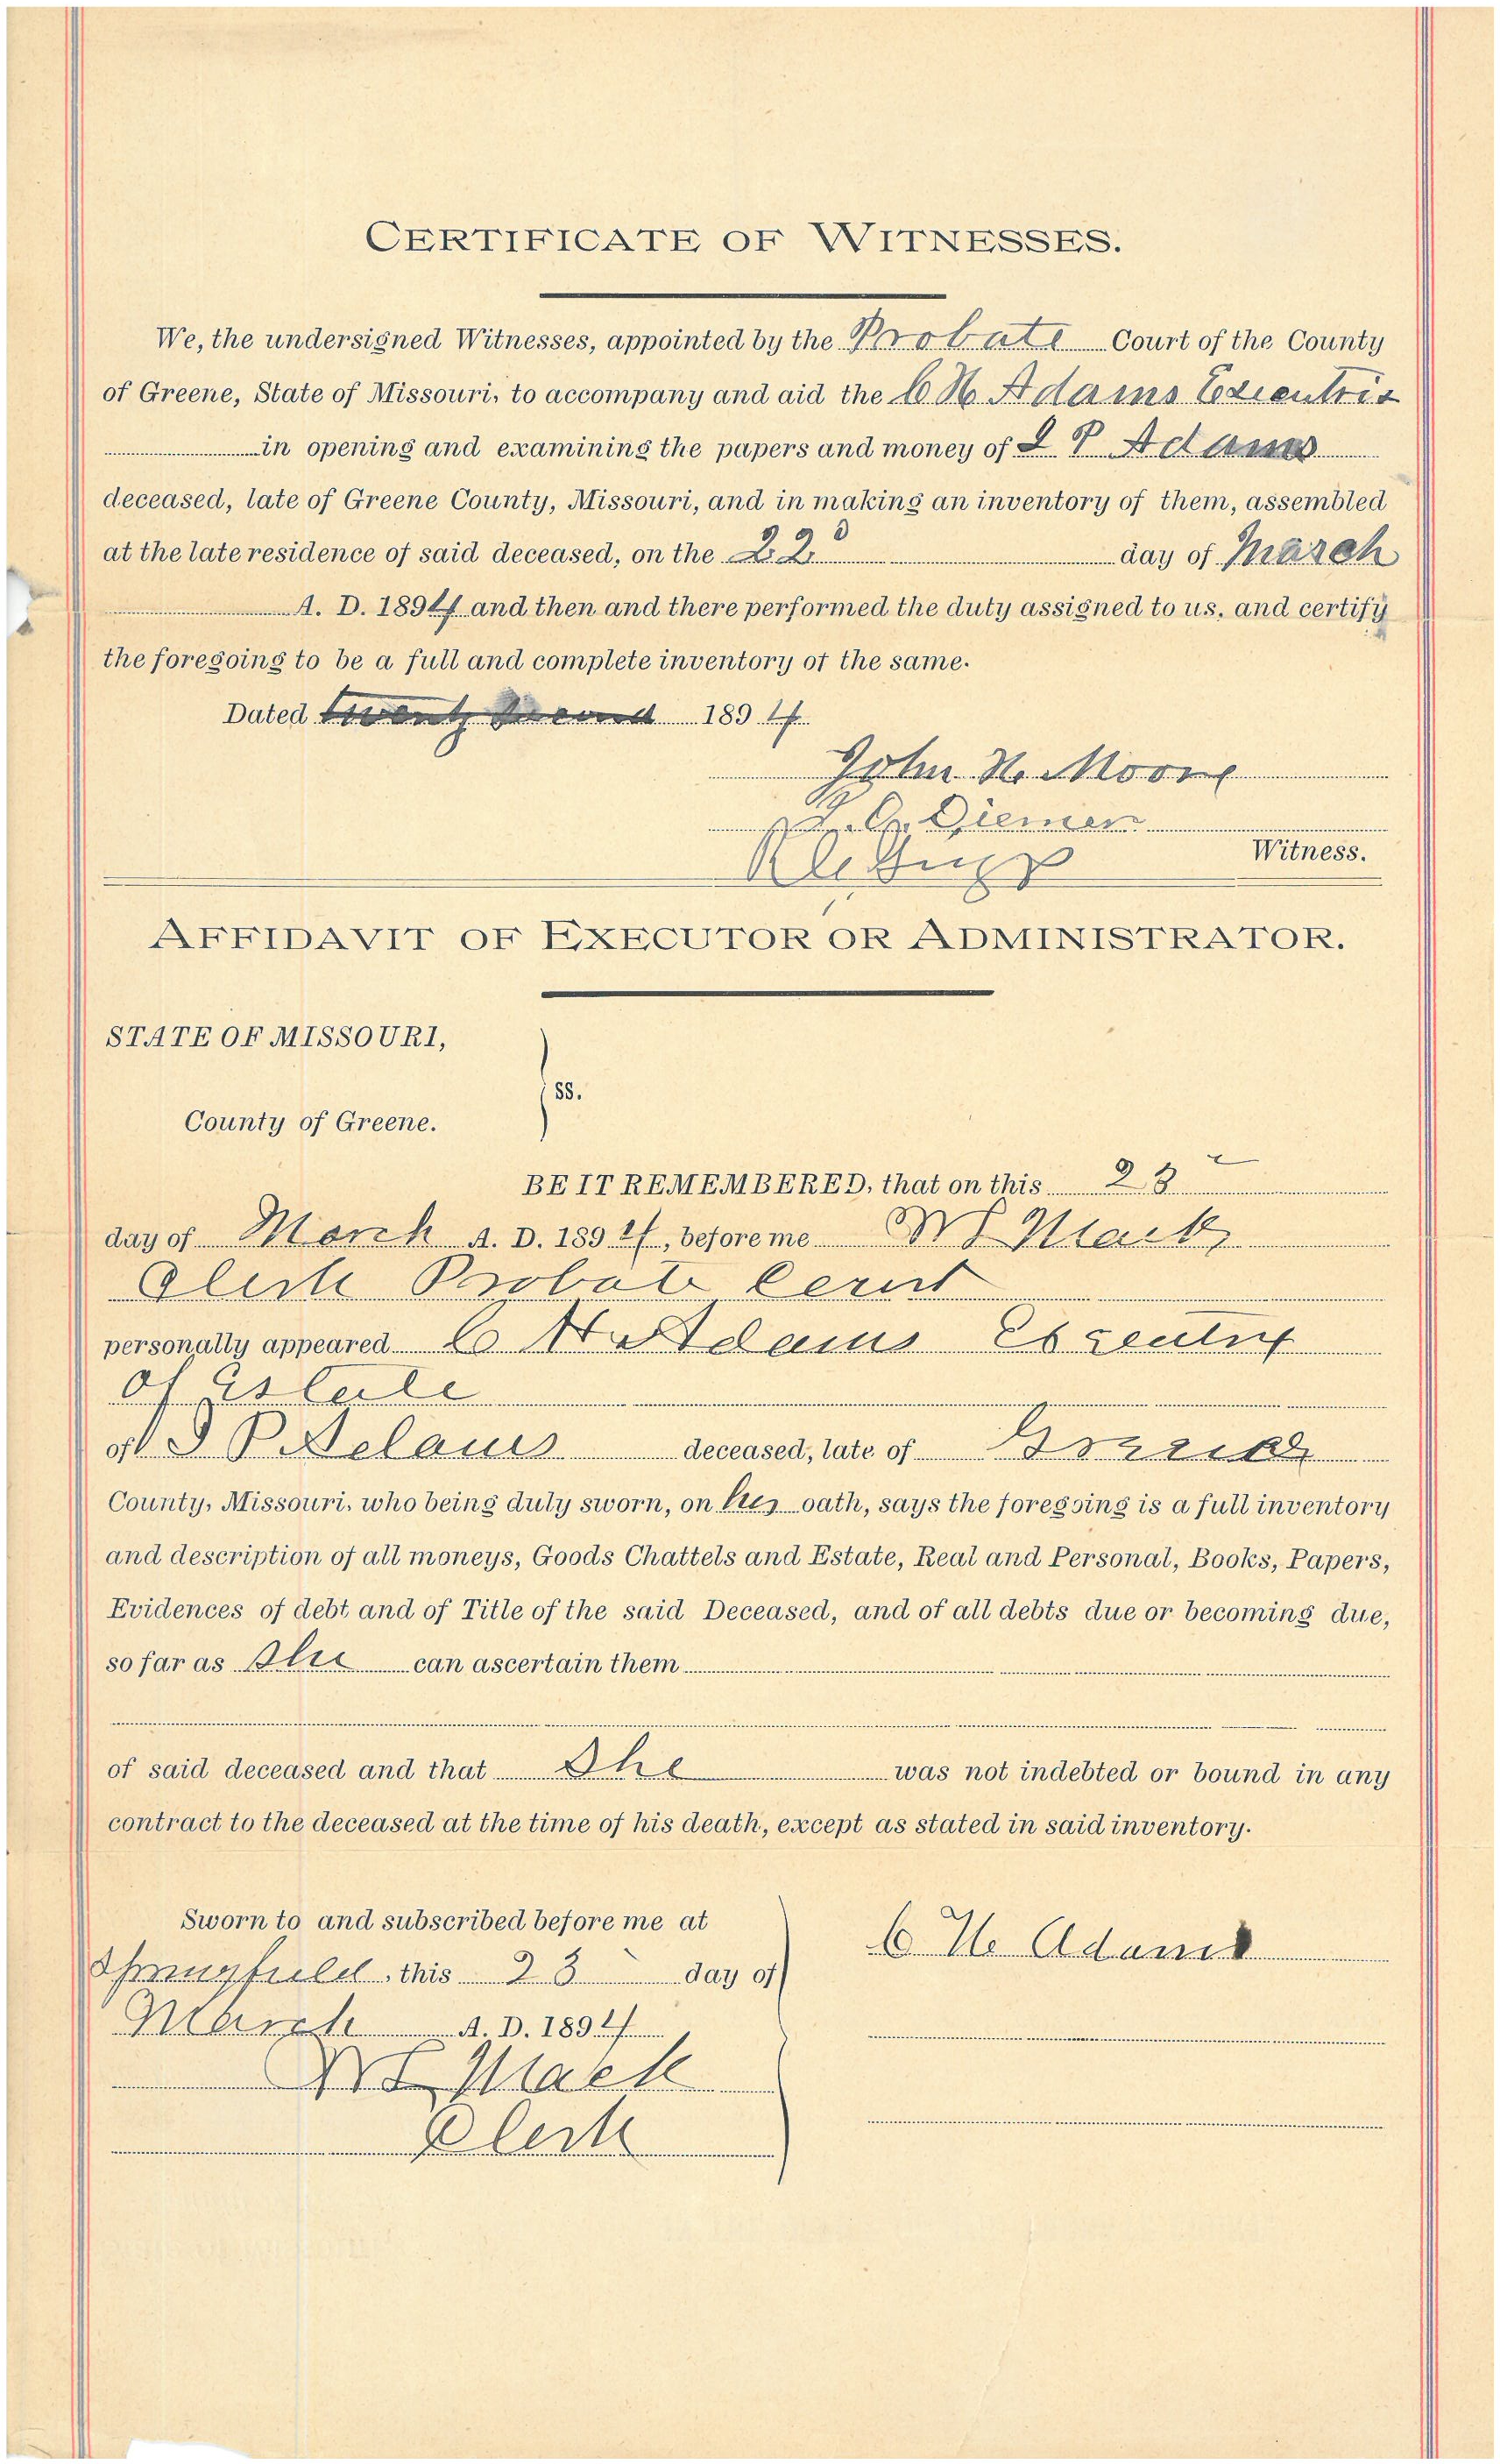 CERTIFICATE OF WITNESSES.
We, the undersigned Witnesses, appointed by the Probate Court of the County
of Greene, State of Missouri, to accompany and aid the C H Adams Executrix
in opening and examining the papers and money of J P Adams
deceased, late of Greene County, Missouri, and in making an inventory of them, assembled
at the late residence of said deceased, on the 22d day of March
A. D. 1894 and then and there performed the duty assigned to us, and certify
the foregoing to be a full and complete inventory of the same.
Dated 1894
John H. Moore
Diemer
Witness.
AFFIDAVIT OF EXECUTOR OR ADMINISTRATOR.
STATE OF MISSOURI,
ss.
County of Greene.
BE IT REMEMBERED, that on this 23
day of March A. D. 1894, before me Mack
Clerk Probate Court
personally appeared C H Adams Executrix
of Estate
of J P Adams deceased, late of Greene
County, Missouri, who being duly sworn, on her oath, says the foregoing is a full inventory
and description of all moneys, Goods Chattels and Estate, Real and Personal, Books, Papers,
Evidences of debt and of Title of the said Deceased, and of all debts due or becoming due,
so far as She can ascertain them
of said deceased and that She was not indebted or bound in any
contract to the deceased at the time of his death, except as stated in said inventory.
Sworn to and subscribed before me at
Springfield, this 23 day of
March A. D. 1894
C H Adams
Mack
Clerk